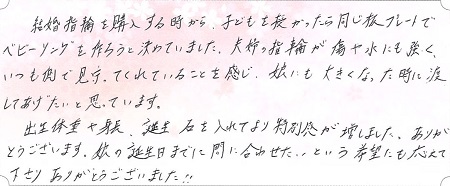 結婚指輪を購入する時から、子どもを授かったら同じ板プレートで
ベビーリングを作ろうと決めていました。夫婦の指輪が傷や水にも強く、
いつも側で見守ってくれていることを感じ、娘にも大きくなった時に渡
してあげたいと思ています。
出生体重や身長、誕生石を入れてより特別感が増しました。ありが
とうございます。娘の誕生日までに間に合わせたい…という希望にも応えて
下さり ありがとうございました!!